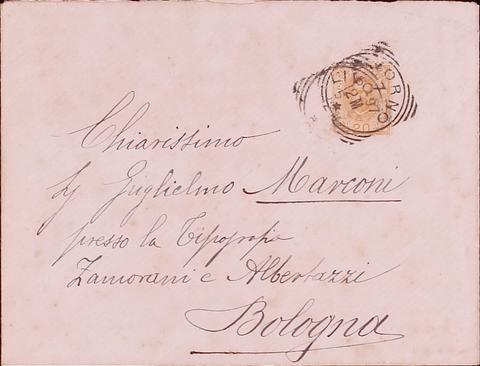 LIVORNO
7
97
2M
20
Chiarissimo
Sg Guglielmo Marconi
presso la Tipografia
Zamorani e Albertazzi
Bologna